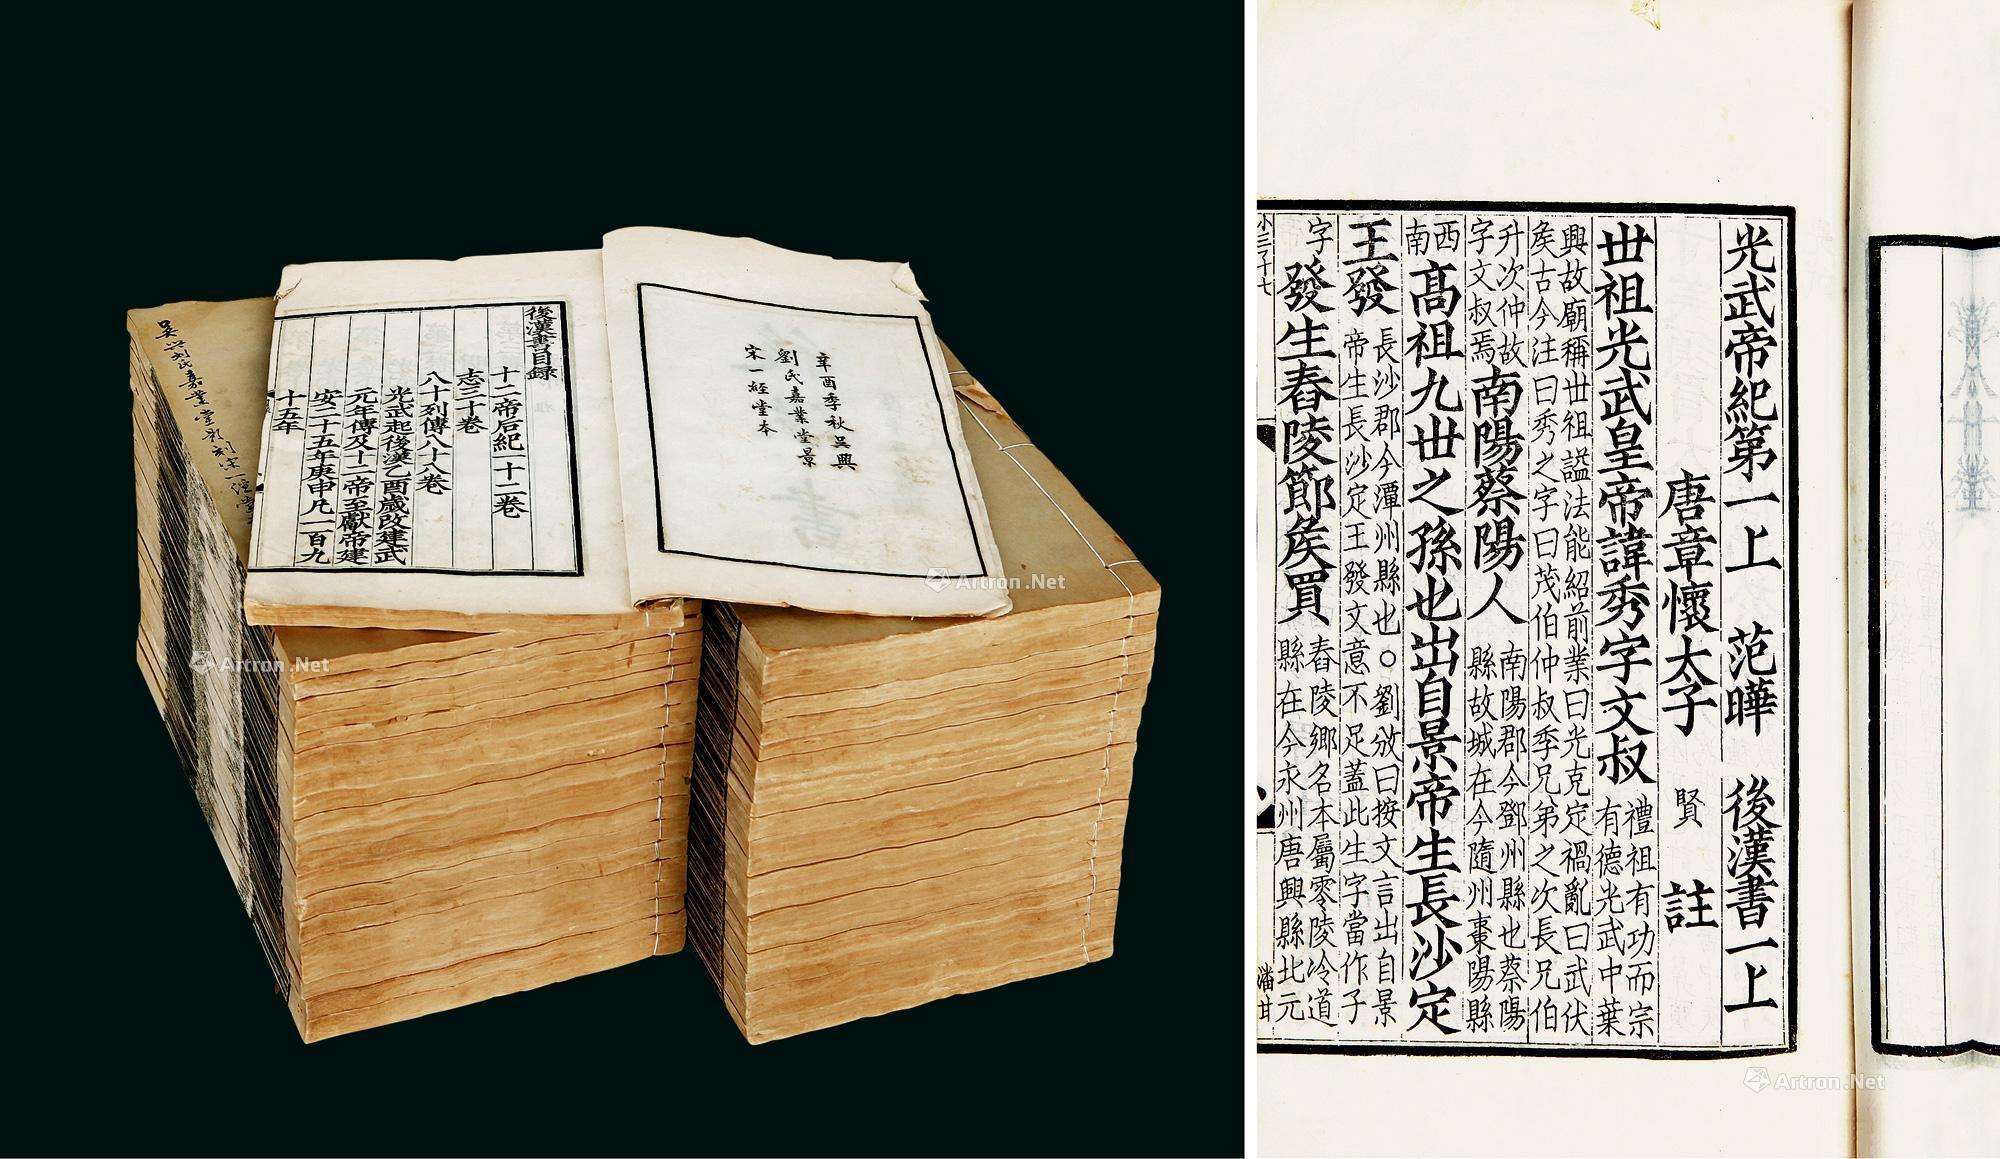 吳興劉氏嘉業堂影刻宋一經堂
後漢書目録
十二帝后紀一十二卷
志三十卷
八十列傳八十八卷
光武起後漢乙酉歳改建武
元年傳及十二帝至獻帝建
安二十五年庚申凡一百九
十五年
辛酉季秋吳興
劉氏嘉業堂景
宋一經堂本
光武帝紀第一上 范曄 後漢書一上
唐章懷太子 賢 註
世祖光武皇帝諱秀字文叔
禮祖有功而宗
有德光武中葉
興故廟稱世祖諡法能紹前業曰光克定禍亂曰武伏
矦古今注曰秀之字曰茂伯仲叔季兄弟之次長兄伯
升次仲故
字文叔焉
南陽蔡陽人
南陽郡今鄧州縣也蔡陽
縣故城在今隨州棗陽縣
西
南
高祖九世之孫也出自景帝生長沙定
王發
長沙郡今潭州縣也○劉攽曰按文言出自景
帝生長沙定王發文意不足蓋此生字當作子
字
發生舂陵節矦買
舂陵鄉名本屬零陵泠道
縣在今永州唐興縣北元
小三千七
潘甘
Artron.Net
Artron.Net
Artron.Net